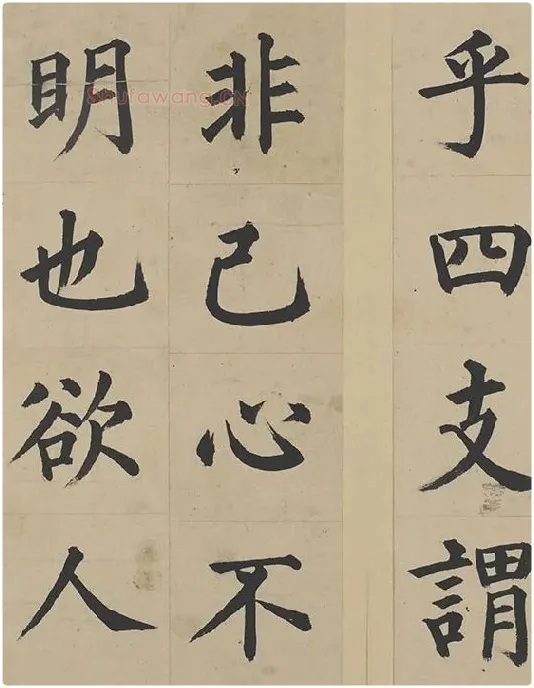 乎四支謂
非己心不
明也欲人
Shufawang.CN